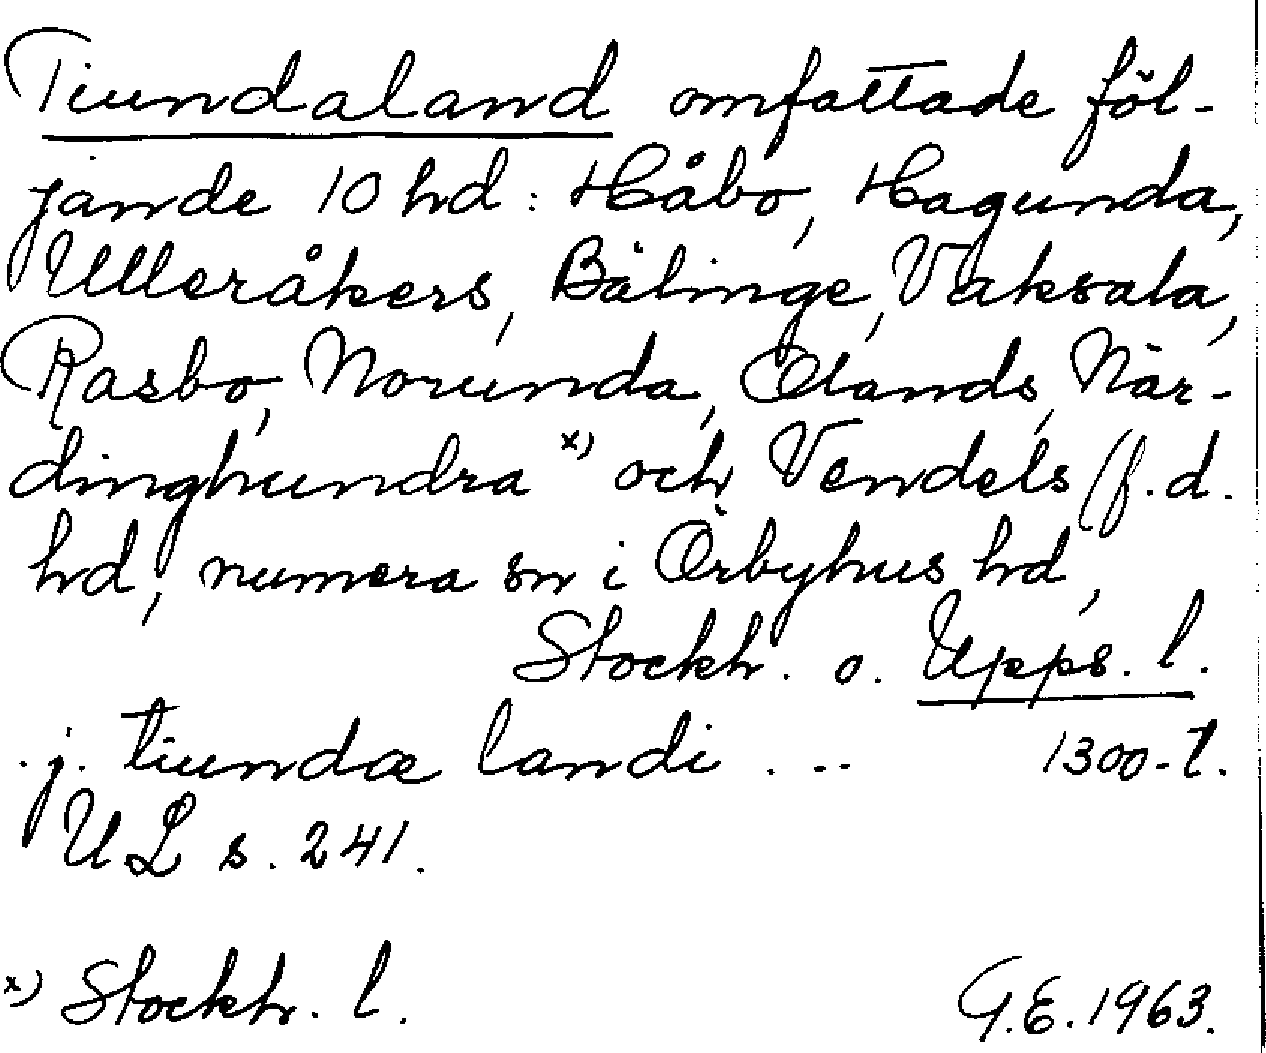 Tiundaland omfattade föl-
jande 10 hd: Håbo, Hagunda,
Ulleråkers, Bälinge, Vaksala,
Rasbo, Norunda, Olands, När-
dinghundra x) och Vendels (f.d.
hd, numera sn i Örbyhus hd,
Stockh. o. Upps. l.
.j. tiundæ landi ... 1300-t.
UL s. 241.
x) Stockh. l. G.E. 1963.